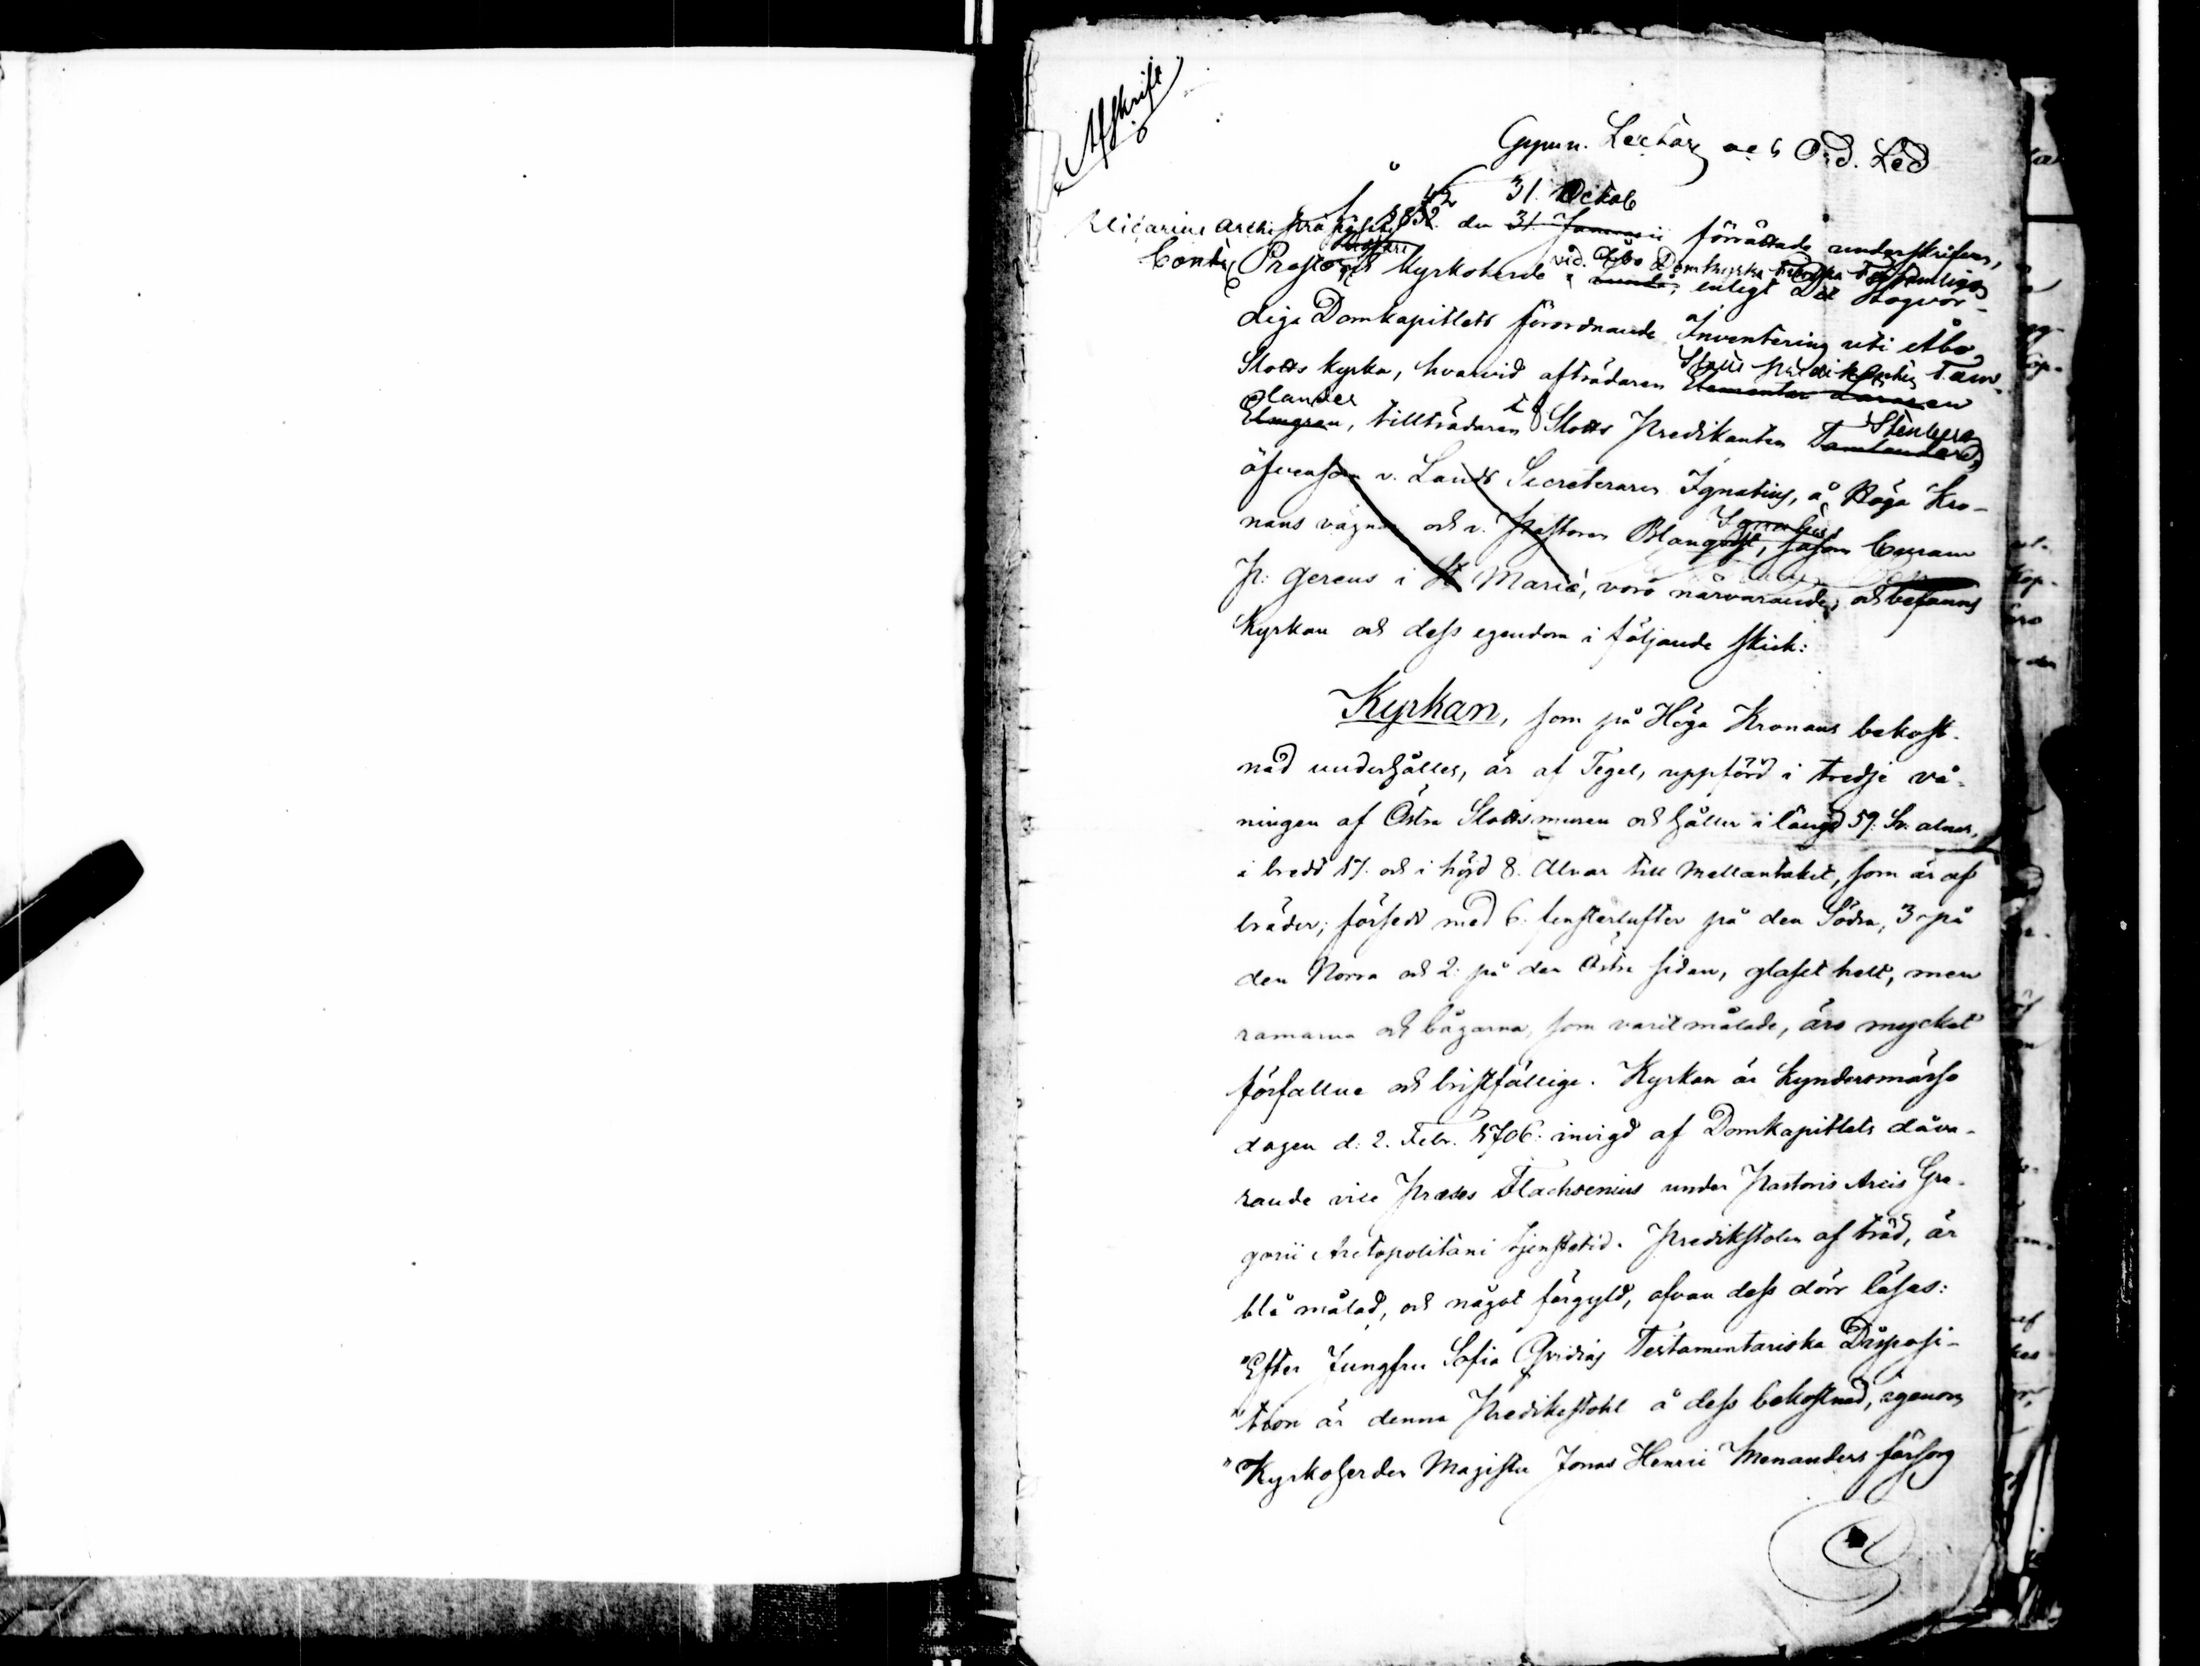 Afskrift
Gymn. Lector och Ord. Led
42 31. Octob
Vicarius Archi Præpositi År 1832. den 31. Januarii förrättade underskrifven,
vid Åbo Domkyrka Finska Församling
Contr. Prost och Kyrkoherde i Lundo, enligt Det Högvör-
diga Domkapitlets förordnande Inventering uti Åbo
Slotts Predikanten Tam-
Slotts kyrka, hvarvid afträdaren Elementar Läraren
lander Stenberg
Elmgren, tillträdaren Slotts Predikanten Tamlander,
äfvensom v. Lands Secreteraren Ignatius, å Höga Kro-
Ignatius
nans vägnar och v. Pastoren Blomqvist, såsom Curam
p: gerens i St Mariæ, voro närvarande, och befanns
Kyrkan och dess egendom i följande skick:
Kyrkan, som på Höga Kronans bekost-
nad underhålles, är af Tegel, uppförd i tredje vå-
ningen af Östra Slottsmuren och håller i längd 59. Sv. alnar,
i bredd 17. och i höjd 8. Alnar till Mellantaket, som är af
bräder; försedt med 6. fensterlufter på den Södra, 3 på
den Norra och 2: på den Östra sidan, glaset helt, men
ramarna och bågarna, som varit målade, äro mycket
förfallne och bristfällige. Kyrkan är Kyndersmässo
dagen d: 2. Febr. 1706: invigd af Domkapitlets dåva-
rande vice Præses Flachsenius under Pastoris Arcis Gre-
gorii Arctopolitani tjenstetid. Predikstolen af träd, är
blå målad, och något förgyld, ofvan dess dörr läses:
"Efter Jungfru Sofia Qvidias Testamentariska Disposi-
"tion är denna Predikestohl å dess bekostnad, igenom
"Kyrkoherden Magister Jonas Henrici Menanders försorg